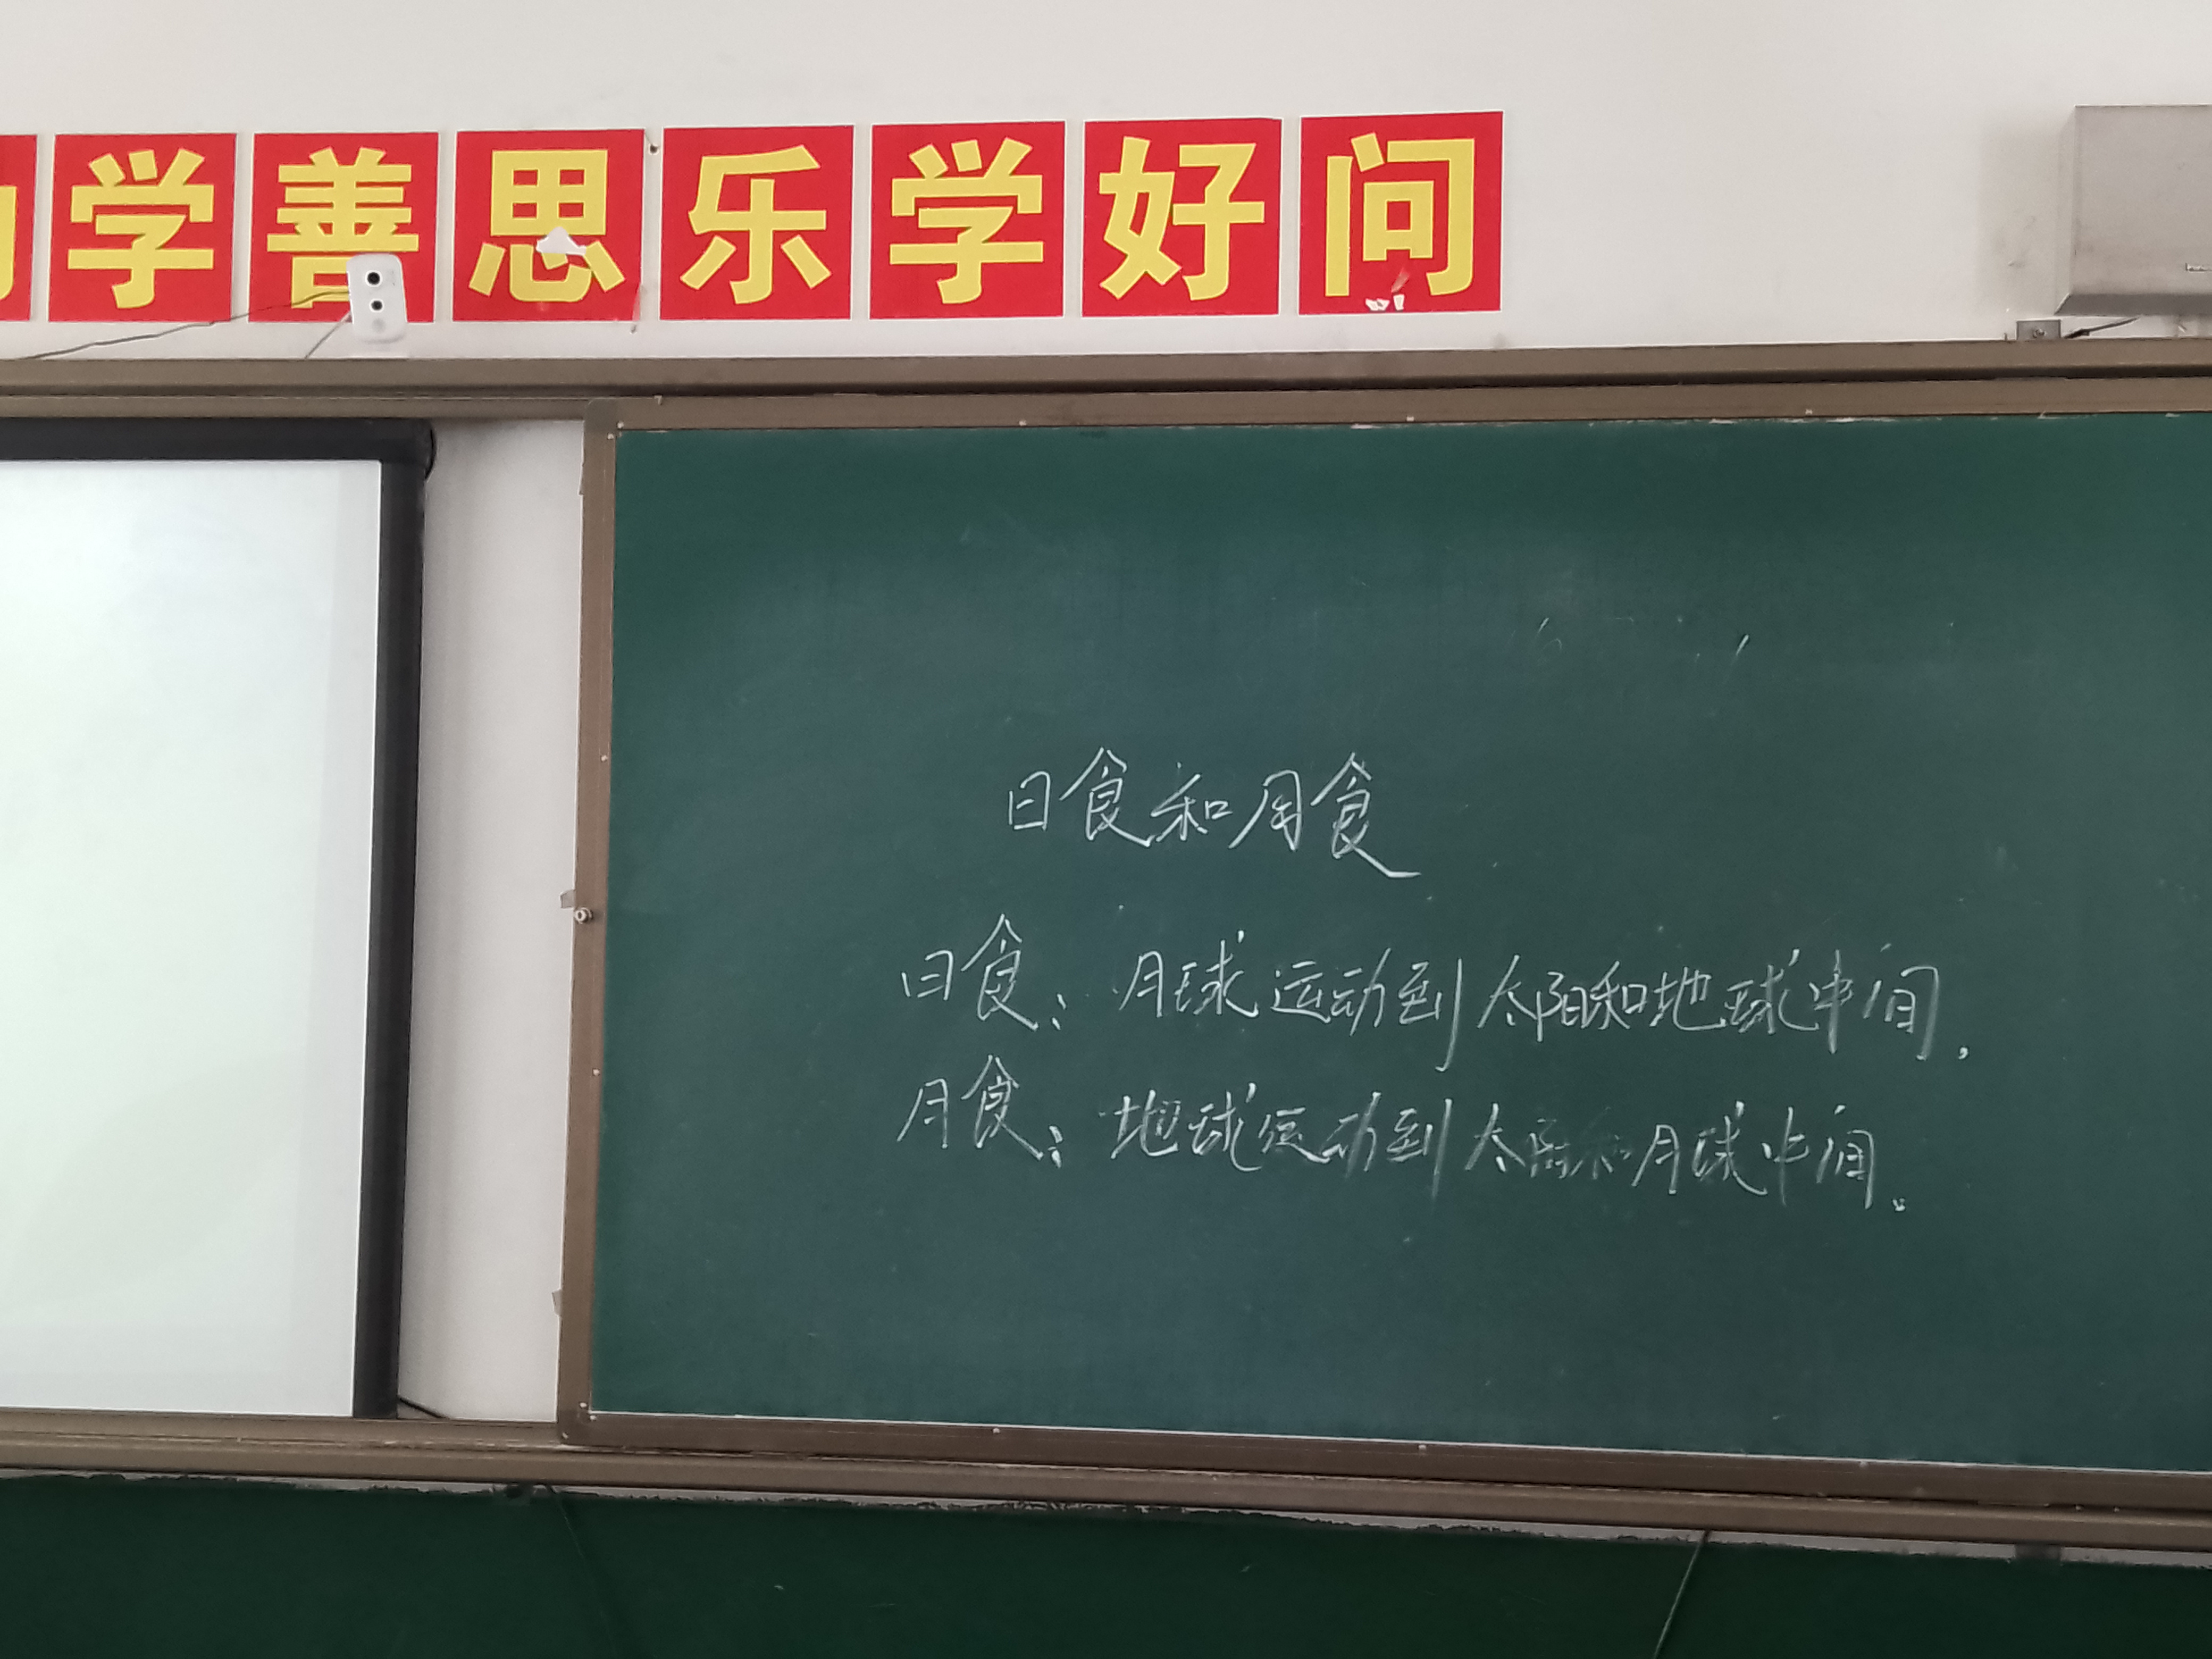 学善思乐学好问
日食和月食
日食：月球运动到太阳和地球中间，
月食：地球运动到太阳和月球中间。